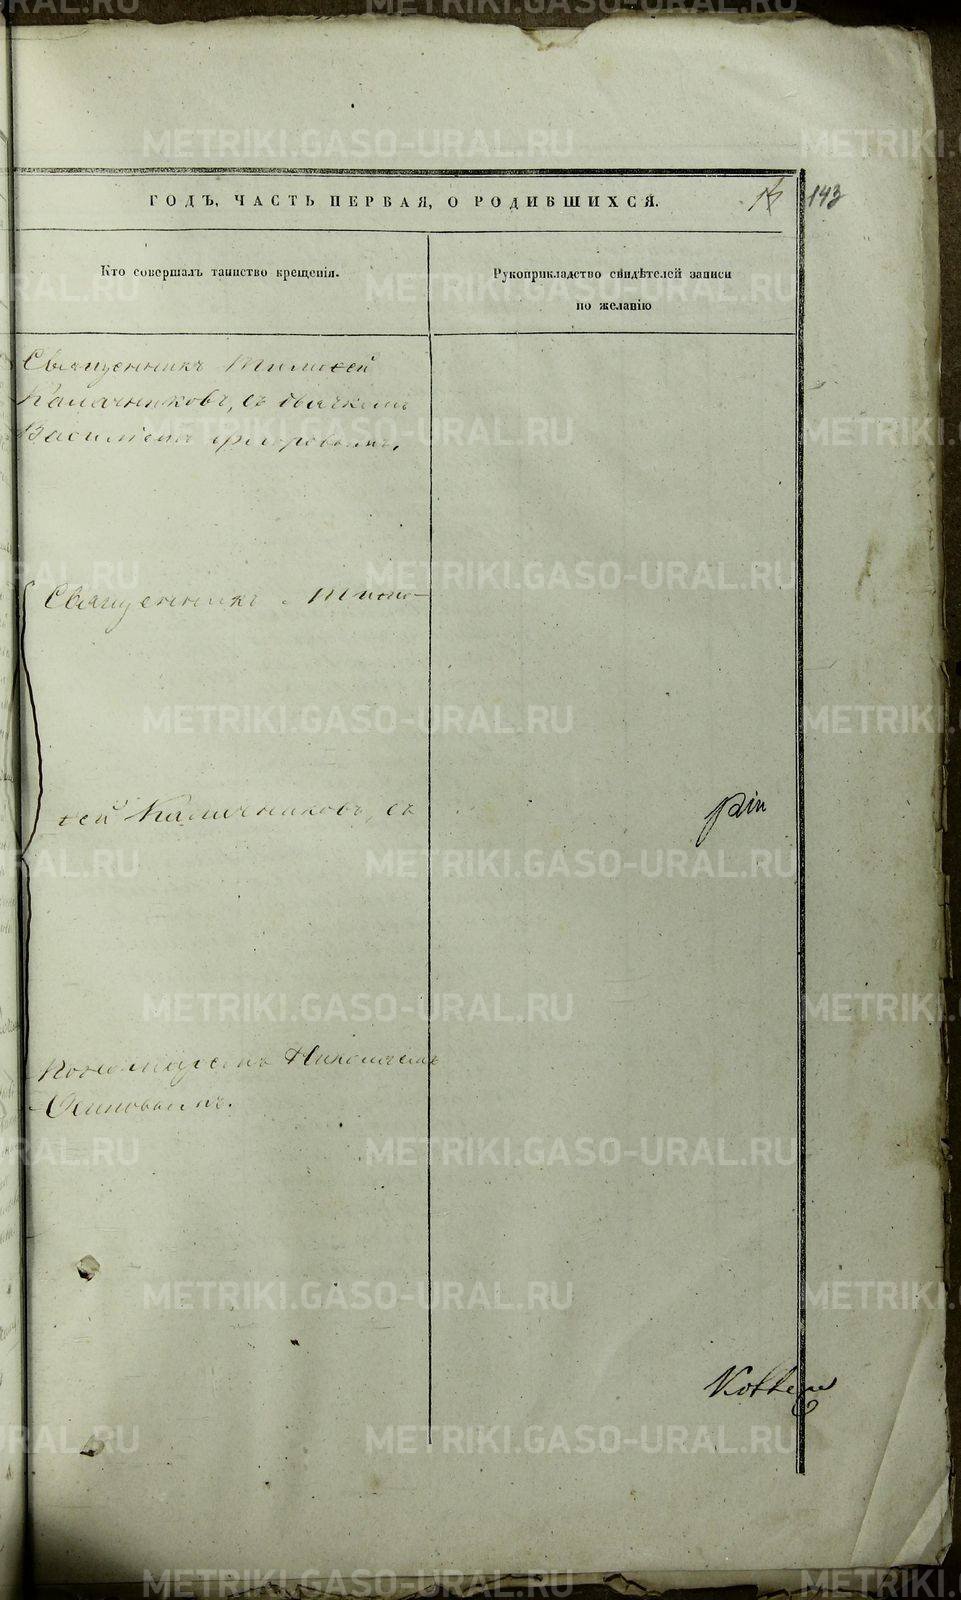 ГОДЪ, ЧАСТЬ ПЕРВАЯ, О РОДИВШИХСЯ.
143
Кто совершалъ таинство крещенія.
Рукоприкладство свидѣтелей записи
по желанію
Священникъ Тимоѳей
Калачниковъ, съ дьячкомъ
Василіемъ Ѳедоровымъ.
Священникъ Тимо-
ѳей Калачниковъ, съ
Пономаремъ Николаемъ
Осиповымъ.
METRIKI.GASO-URAL.RU